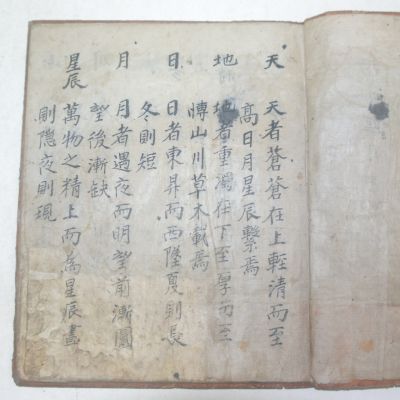 天　天者蒼蒼在上輕清而至
高日月星辰繫焉
地　地者重濁在下至厚而至
博山川草木載焉
日　日者東昇而西墜夏則長
冬則短
月　月者遇夜而明望前漸圓
望後漸缺
星辰　萬物之精上而為星辰晝
則隱夜則現